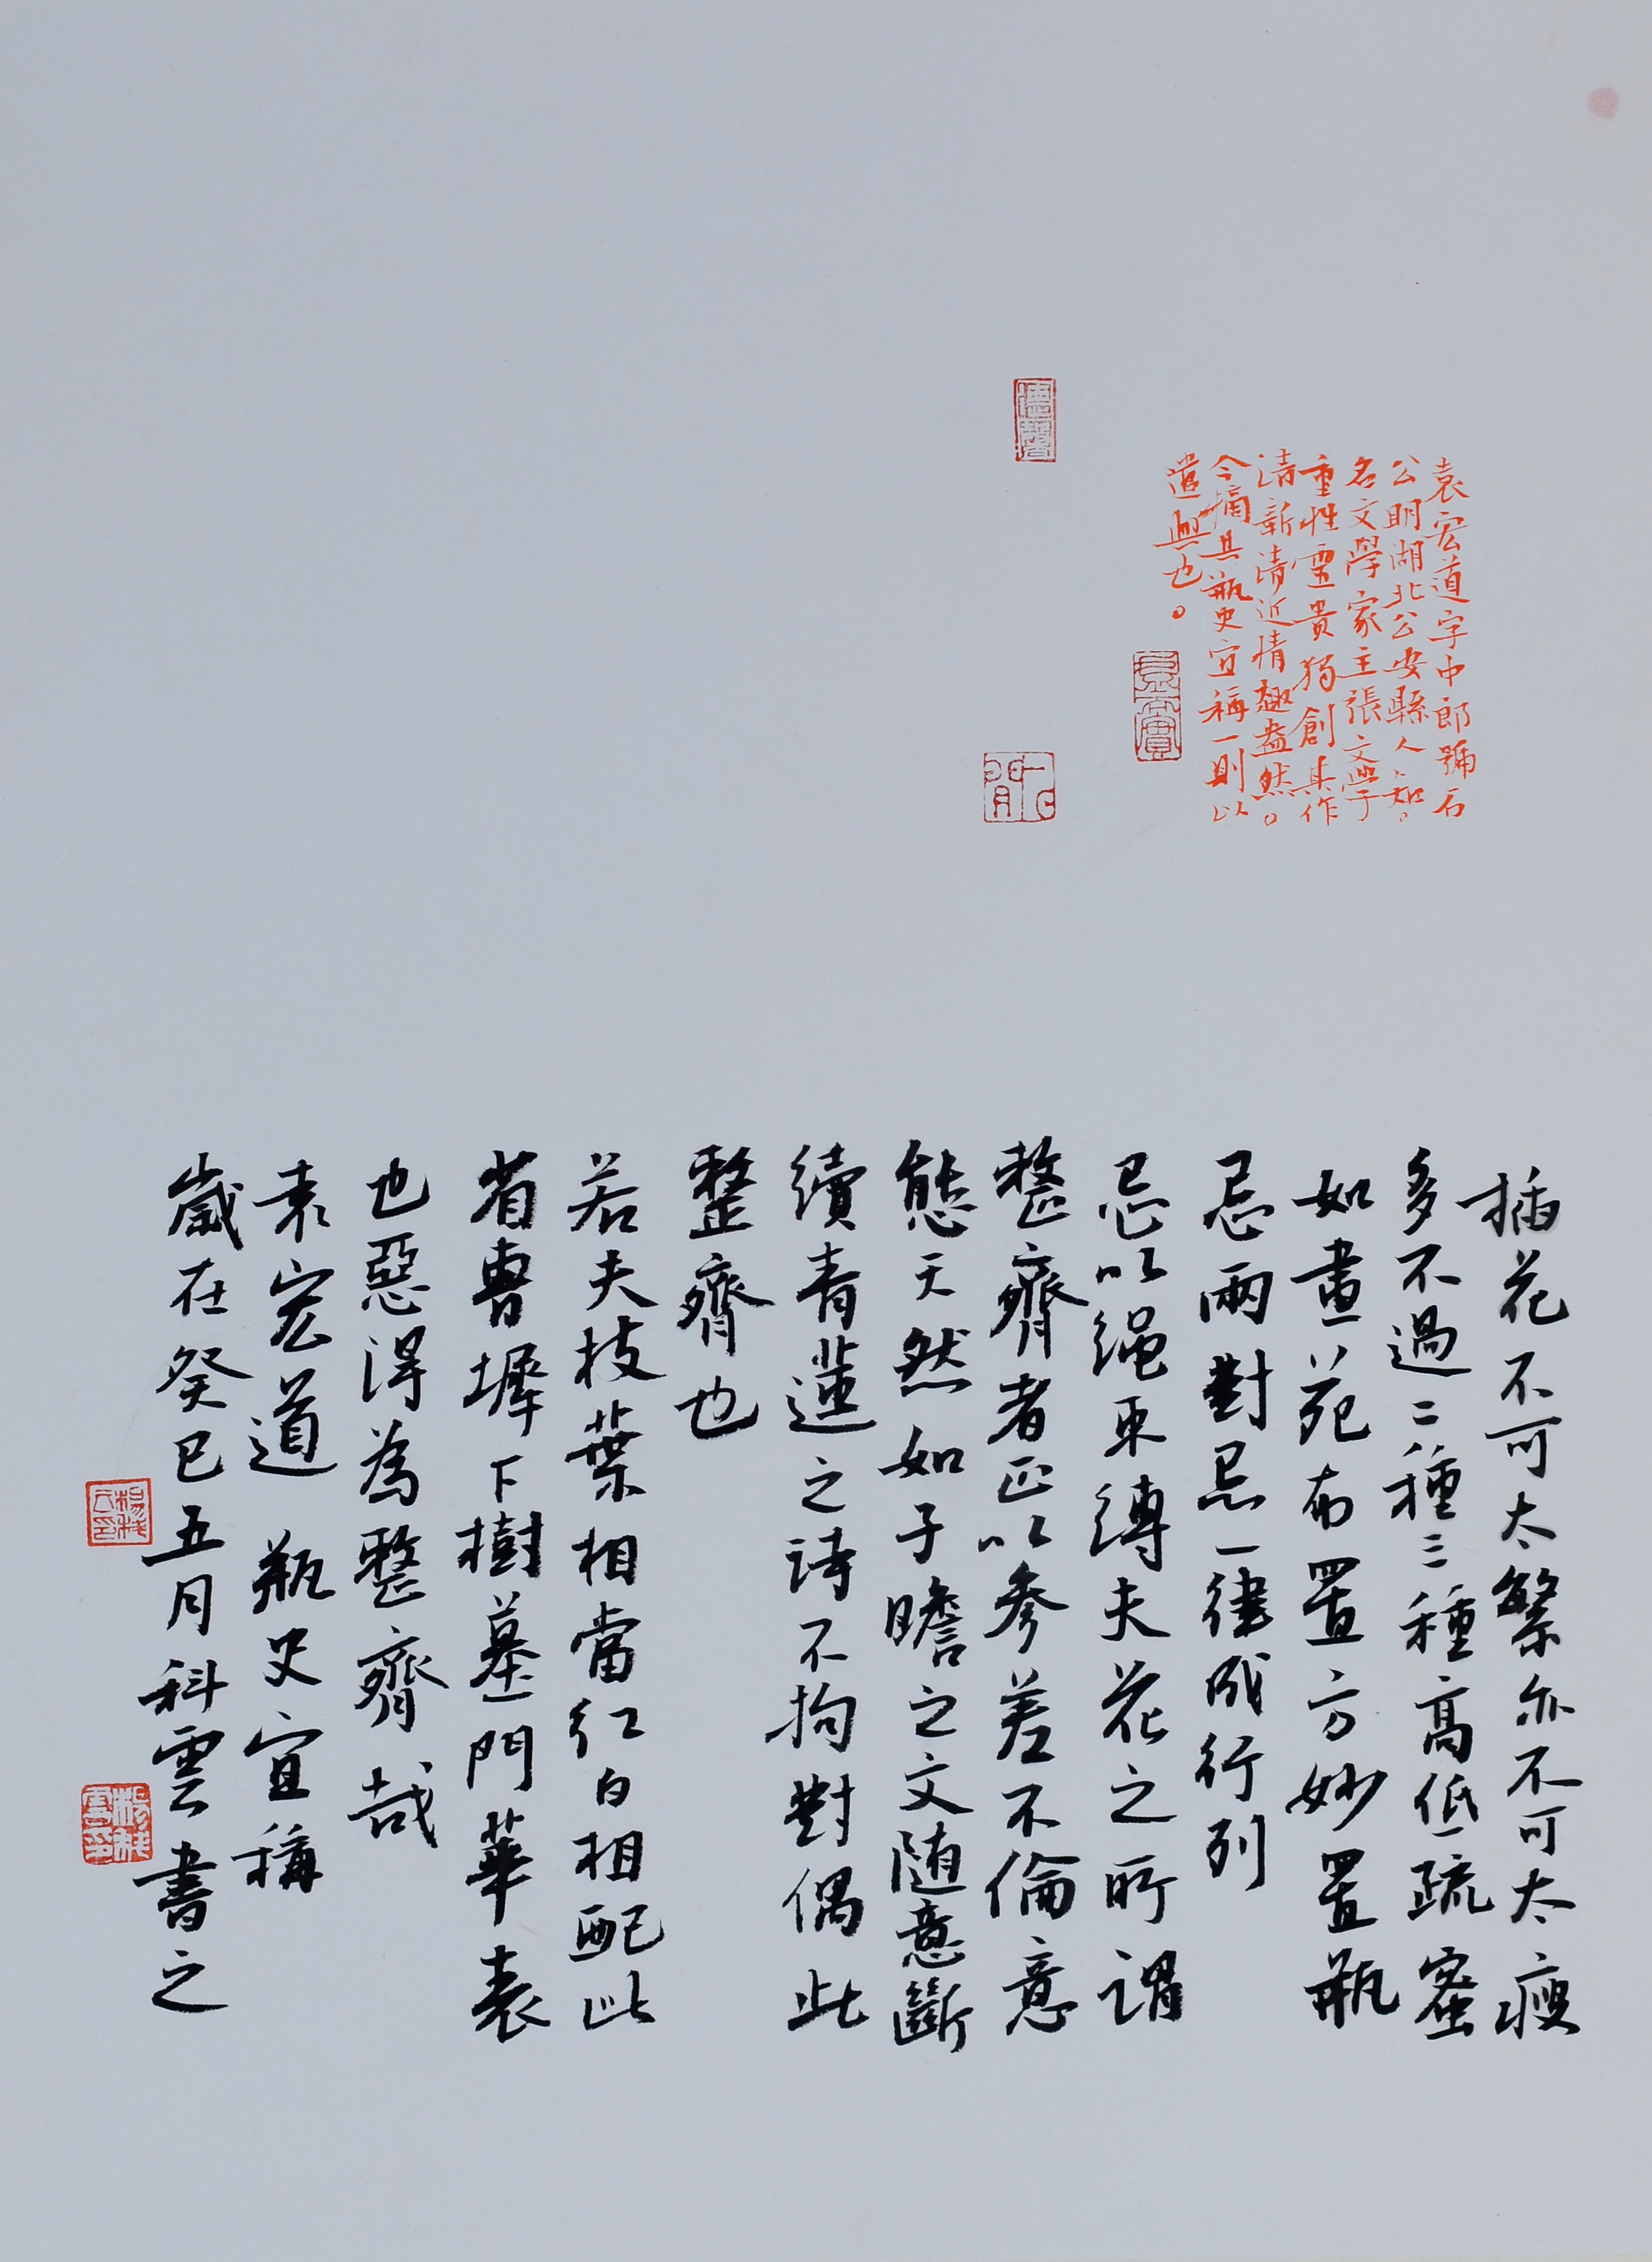 袁宏道字中郎號石
公明湖北公安縣人知
名文學家主張文學
重性靈貴獨創其作
清新清近情趣盎然。
今摘其瓶史宜稱一則以
遣興也。
插花不可太繁亦不可太瘦
多不過二種三種高低疏密
如畫苑布置方妙置瓶
忌兩對忌一律忌成行列
忌以繩束縛夫花之所謂
整齊者正以參差不倫意
態天然如子瞻之文随意斷
續青蓮之詩不拘對偶此
整齊也
若夫枝葉相當红白相配此
省曹墀下樹墓門華表
也惡得為整齊哉
袁宏道 瓶史宜稱
歲在癸巳五月科雲書之